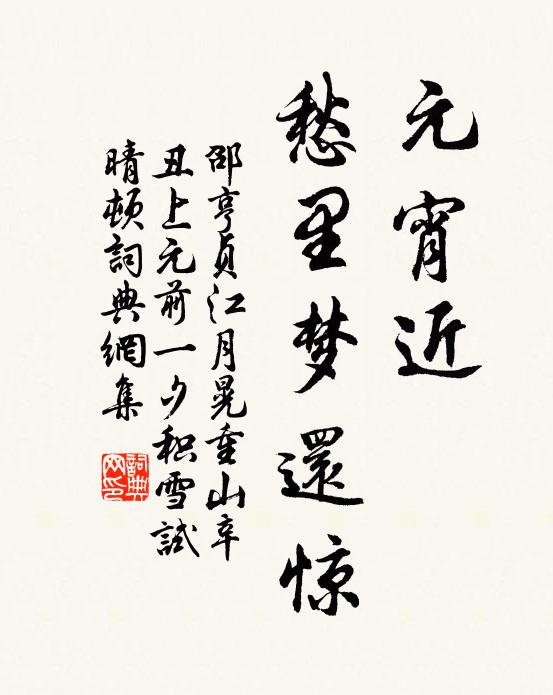 元宵近
愁里梦還惊
邵亨貞江月晃重山辛
丑上元前一夕积雪試
晴頓詞典網集
詞典網印